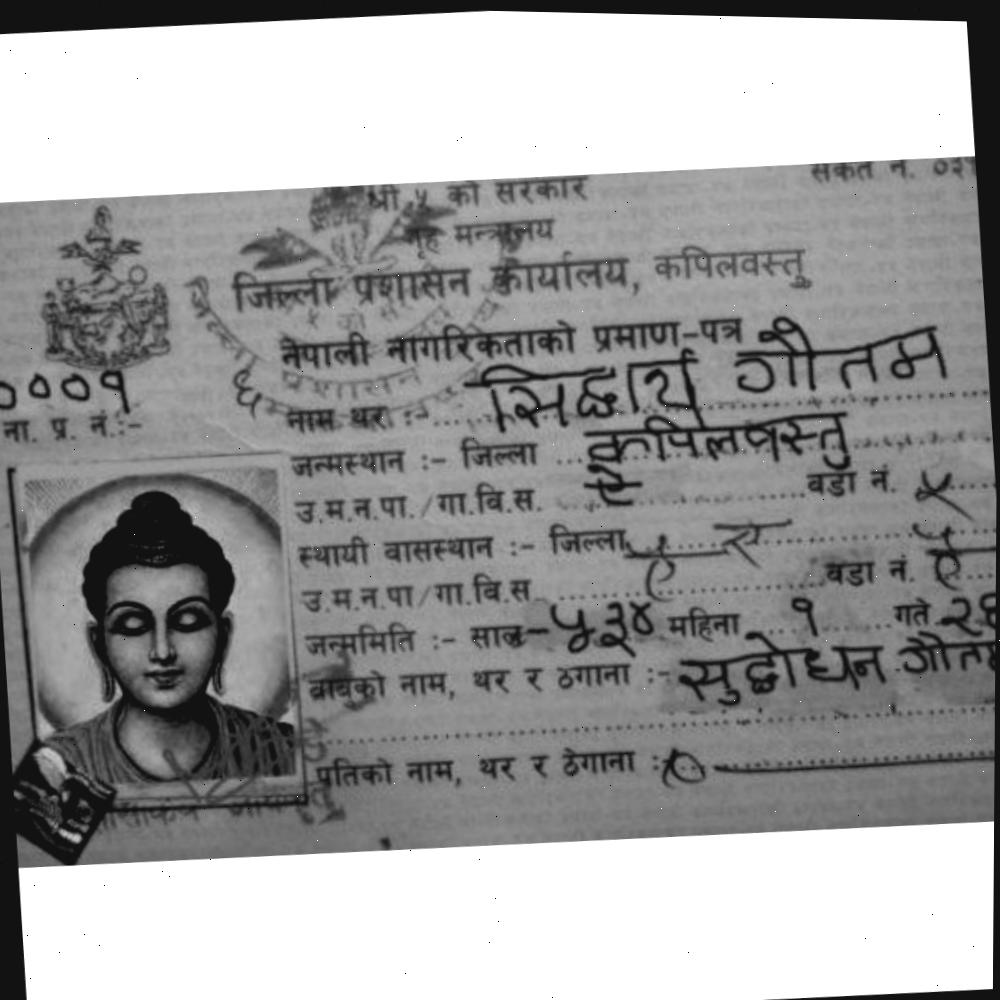 श्री ५ को सरकार
संकेत नं. ०३
गृह मन्त्रालय
जिल्ला प्रशासन कार्यालय, कपिलवस्तु
नेपाली नागरिकताको प्रमाण-पत्र
०००१
ना. प्र. नं.:-
नाम थर :- सिद्धार्थ गौतम
जन्मस्थान :- जिल्ला कपिलवस्तु
उ.म.न.पा./गा.वि.स. ऐ वडा नं. ५
स्थायी वासस्थान :- जिल्ला
उ.म.न.पा/गा.वि.स. वडा नं. ऐ
जन्ममिति :- साल -५३४ महिना १ गते २६
बाबुको नाम, थर र ठेगाना :- सुद्धोधन गौतम
पतिको नाम, थर र ठेगाना :-